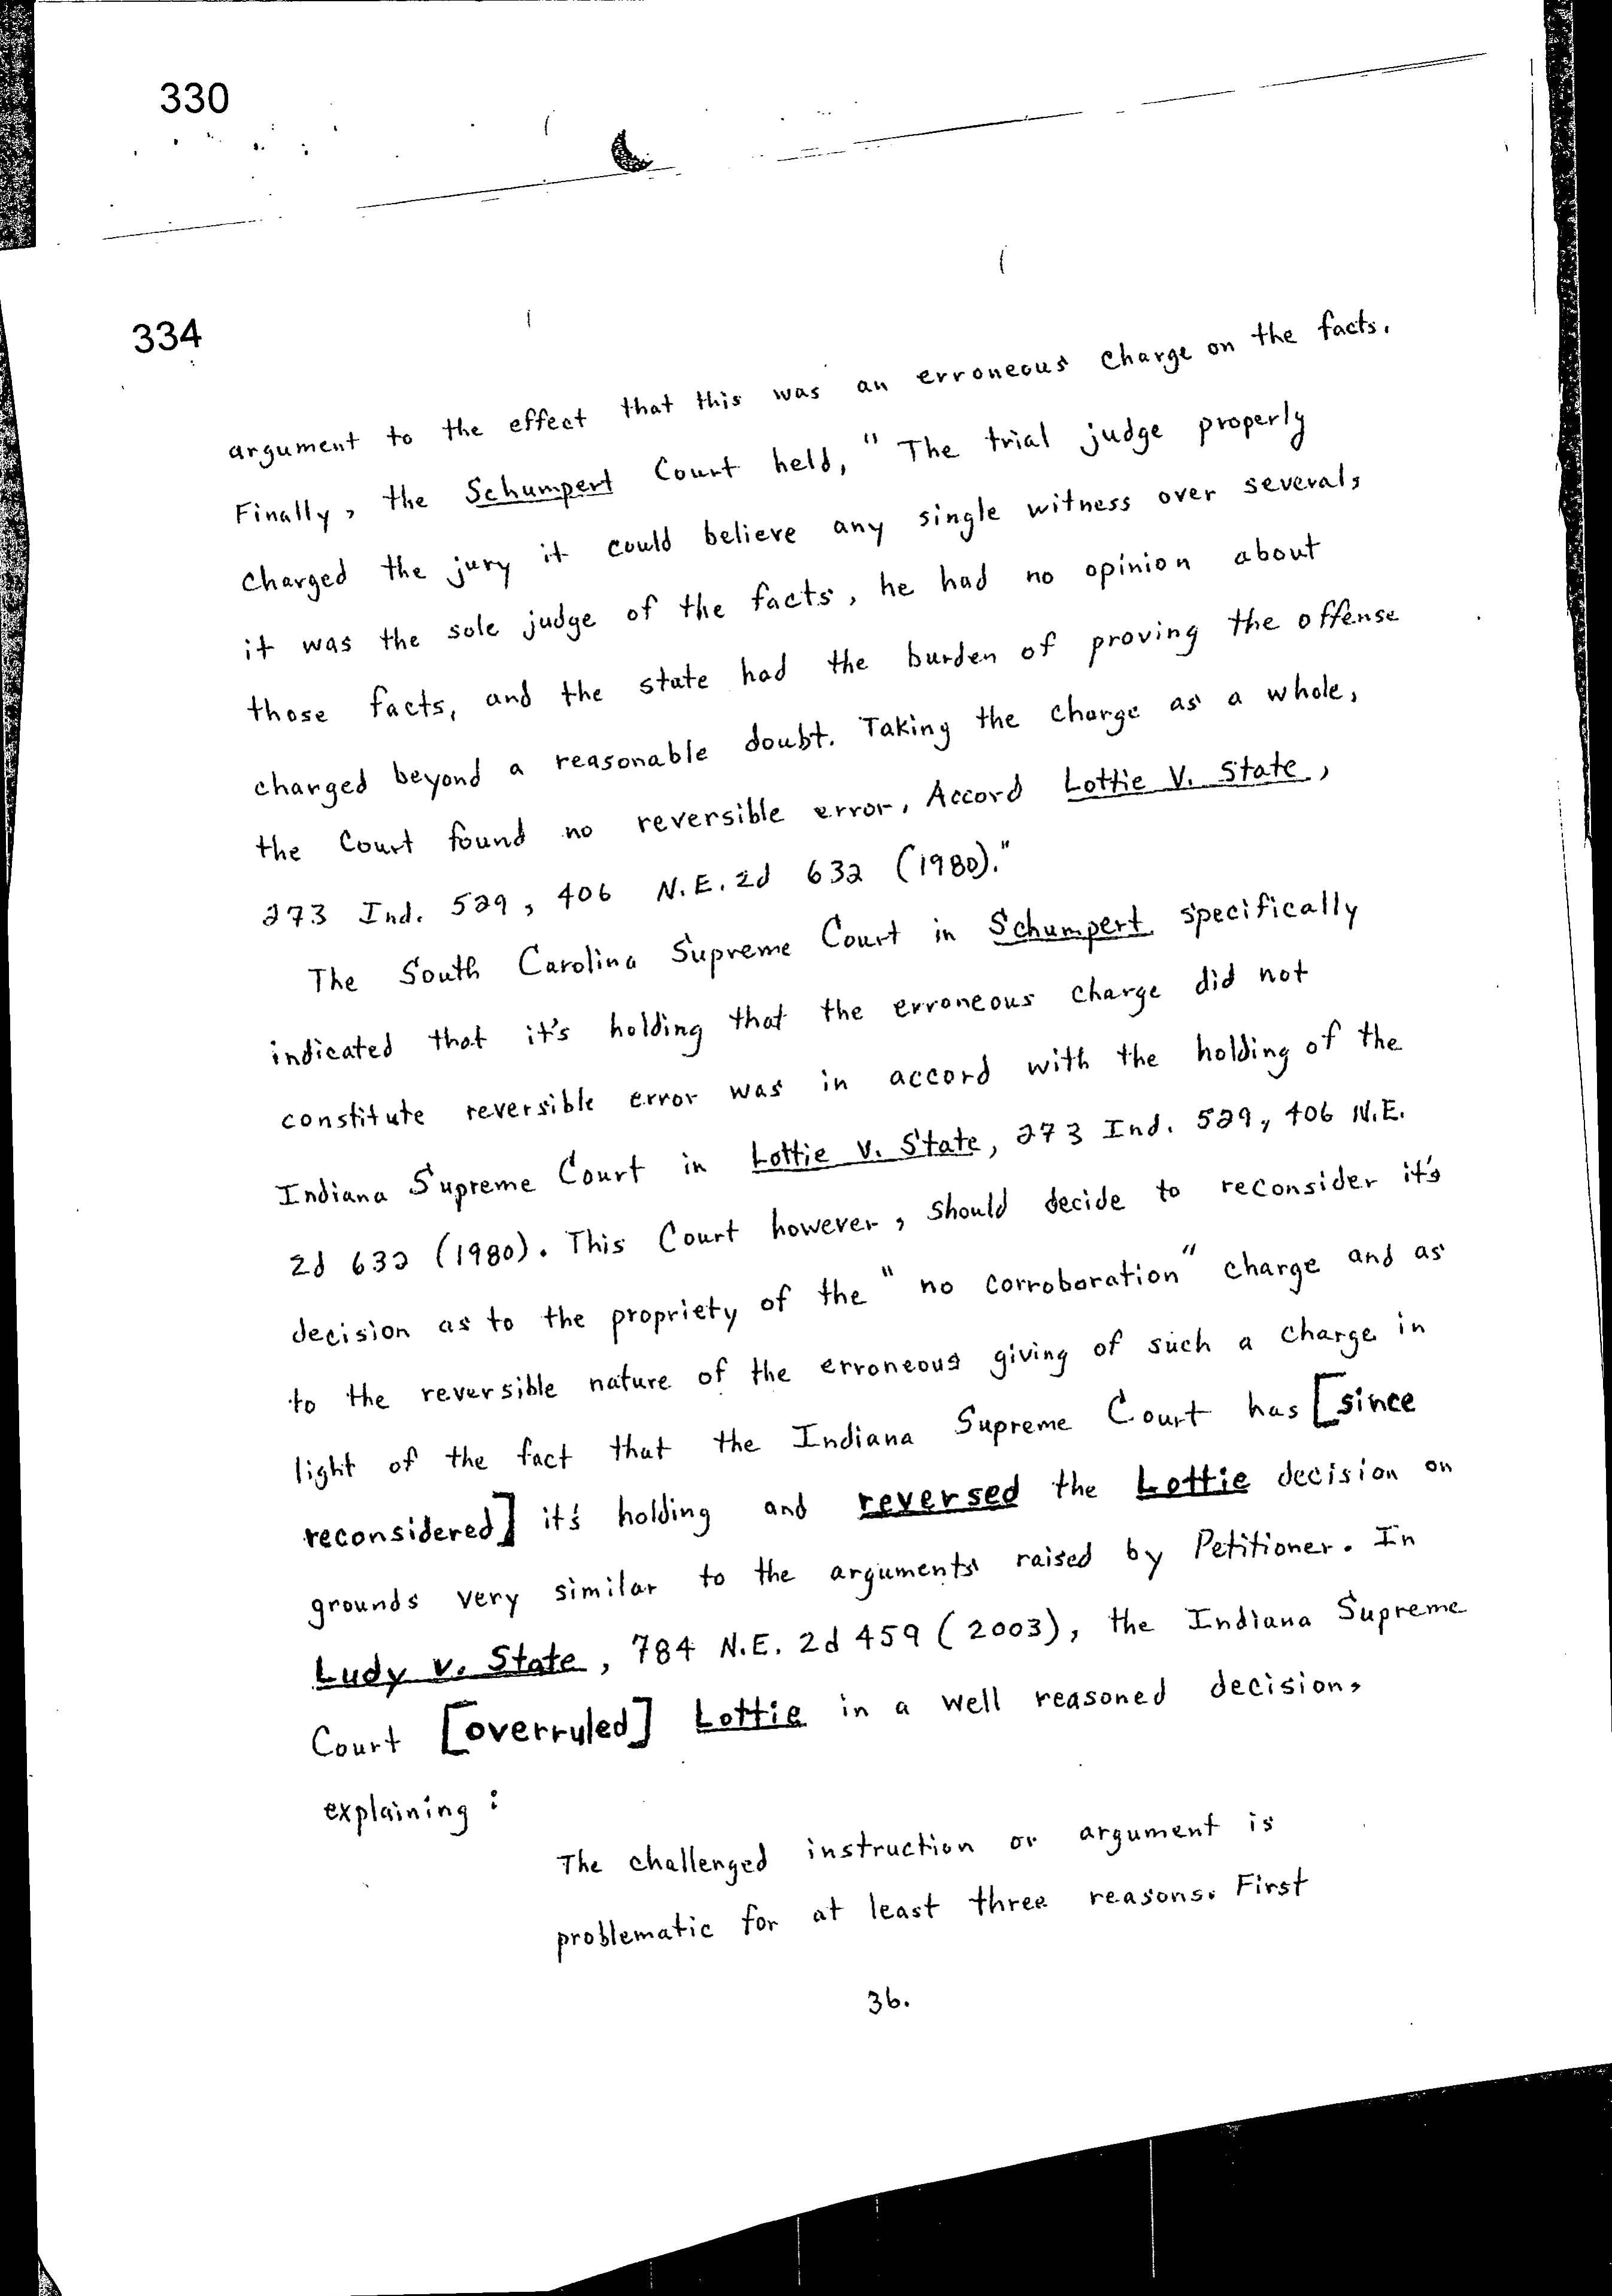 330
334
argument to the effect that this was an erroneous charge on the facts.
Finally, the Schumpert Court held, "The trial judge properly
charged the jury it could believe any single witness over several,
it was the sole judge of the facts, he had no opinion about
those facts, and the state had the burden of proving the offense
charged beyond a reasonable doubt. Taking the charge as a whole,
the Court found no reversible error. Accord Lottie V. State,
273 Ind. 529, 406 N.E. 2d 632 (1980)."
The South Carolina Supreme Court in Schumpert specifically
indicated that it's holding that the erroneous charge did not
constitute reversible error was in accord with the holding of the
Indiana Supreme Court in Lottie V. State, 273 Ind. 529, 406 N.E.
2d 632 (1980). This Court however, should decide to reconsider it's
decision as to the propriety of the "no corroboration" charge and as
to the reversible nature of the erroneous giving of such a charge in
light of the fact that the Indiana Supreme Court has [since
reconsidered] it's holding and reversed the Lottie decision on
grounds very similar to the arguments raised by Petitioner. In
Ludy v. State, 784 N.E. 2d 459 (2003), the Indiana Supreme
Court [overruled] Lottie in a well reasoned decision,
explaining:
The challenged instruction or argument is
problematic for at least three reasons. First
36.